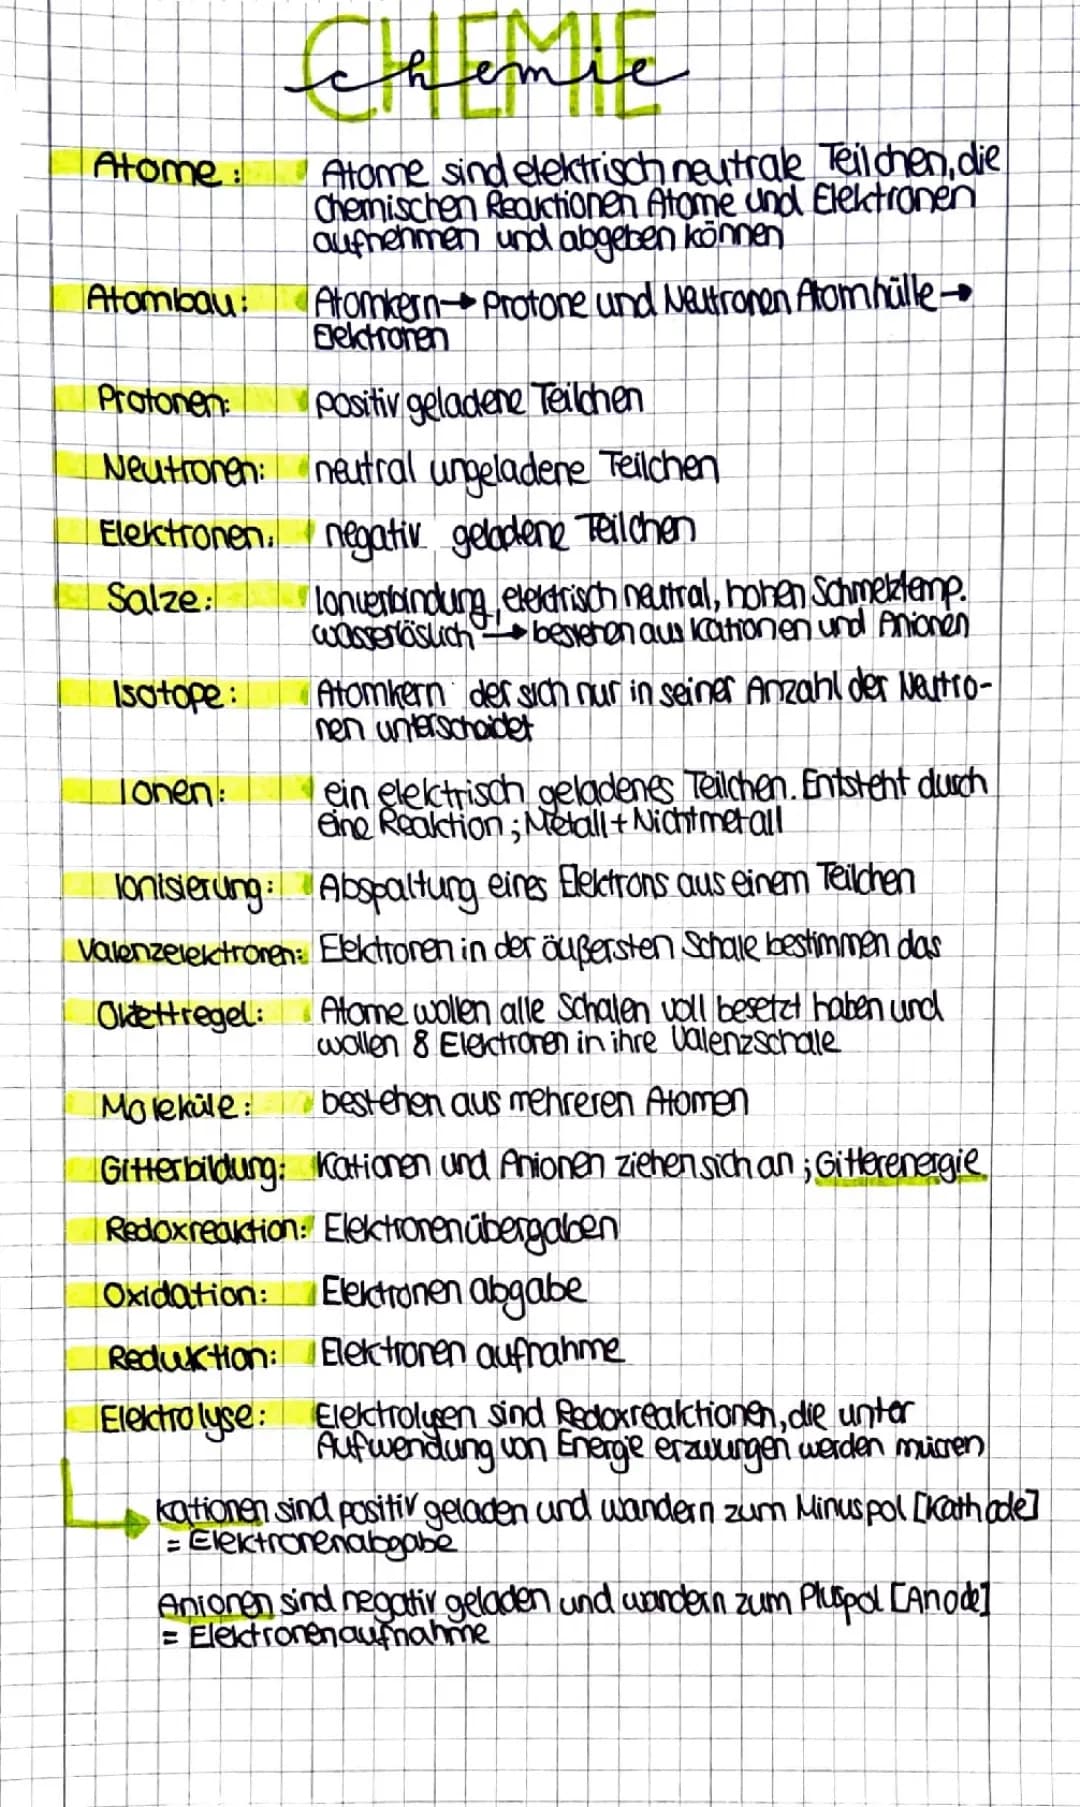 CHEMIE
chemie
Atome: Atome sind elektrisch neutrale Teilchen, die
chemischen Reaktionen Atome und Elektronen
aufnehmen und abgeben können
Atombau: Atomkern → Protone und Neutronen Atomhülle →
Elektronen
Protonen: positiv geladene Teilchen
Neutronen: neutral ungeladene Teilchen
Elektronen: negativ geladene Teilchen
Salze: Ionverbindung, elektrisch neutral, hohen Schmelztemp.
wasserlöslich → bestehen aus Kationen und Anionen
Isotope: Atomkern der sich nur in seiner Anzahl der Neutro-
nen unterscheidet
Ionen: ein elektrisch geladenes Teilchen. Entsteht durch
eine Reaktion; Metall + Nichtmetall
Ionisierung: Abspaltung eines Elektrons aus einem Teilchen
Valenzelektronen: Elektronen in der äußersten Schale bestimmen das
Oktettregel: Atome wollen alle Schalen voll besetzt haben und
wollen 8 Elektronen in ihre Valenzschale
Moleküle: bestehen aus mehreren Atomen
Gitterbildung: Kationen und Anionen ziehen sich an; Gitterenergie
Redoxreaktion: Elektronenübergaben
Oxidation: Elektronen abgabe
Reduktion: Elektronen aufnahme
Elektrolyse: Elektrolysen sind Redoxreaktionen, die unter
Aufwendung von Energie erzwungen werden müssen
Kationen sind positiv geladen und wandern zum Minuspol [Kathode]
= Elektronenabgabe
Anionen sind negativ geladen und wandern zum Pluspol [Anode]
= Elektronenaufnahme